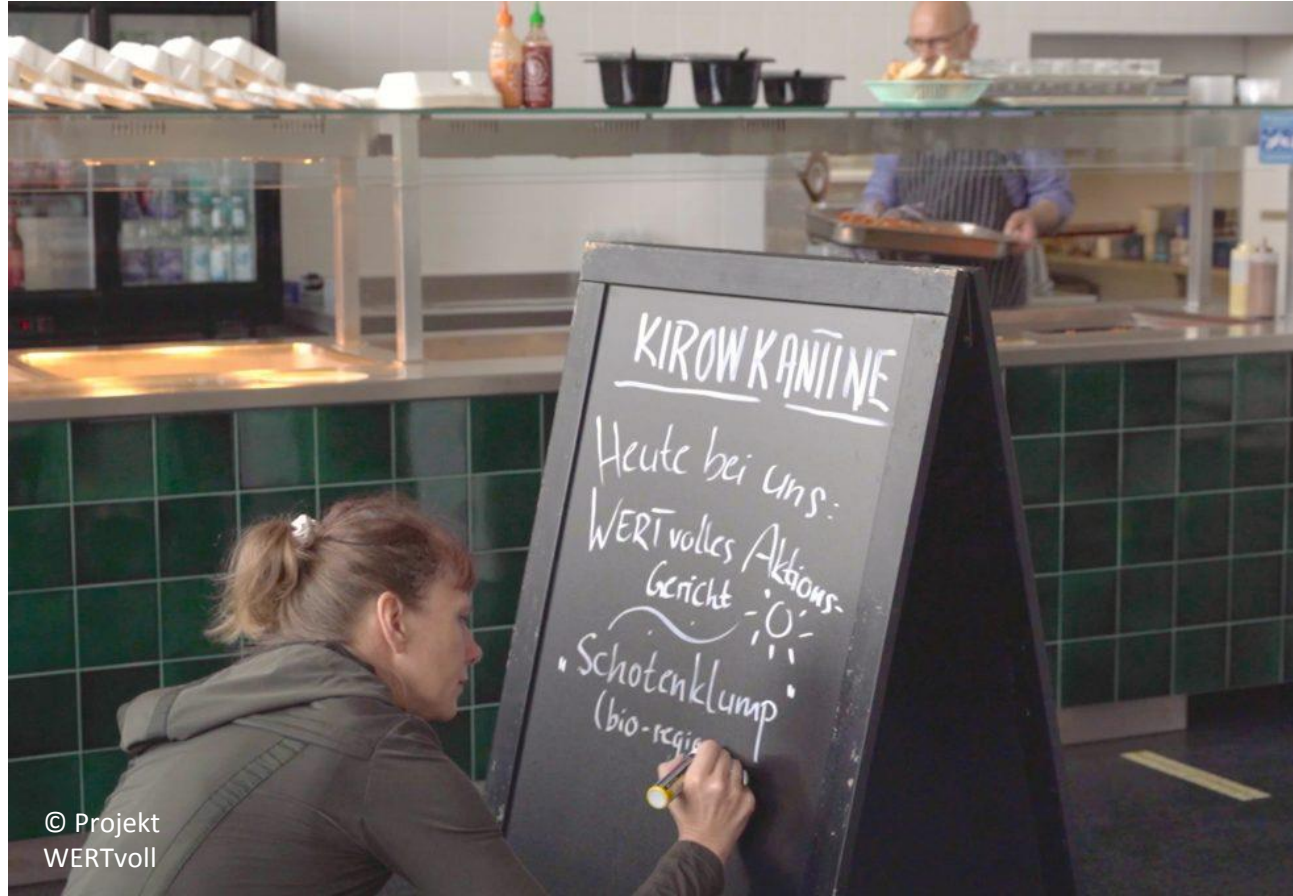 KIROW KANTINE
Heute bei uns:
WERTvolles Aktions-
Gericht
"Schotenklump"
(bio-regio
© Projekt
WERTvoll